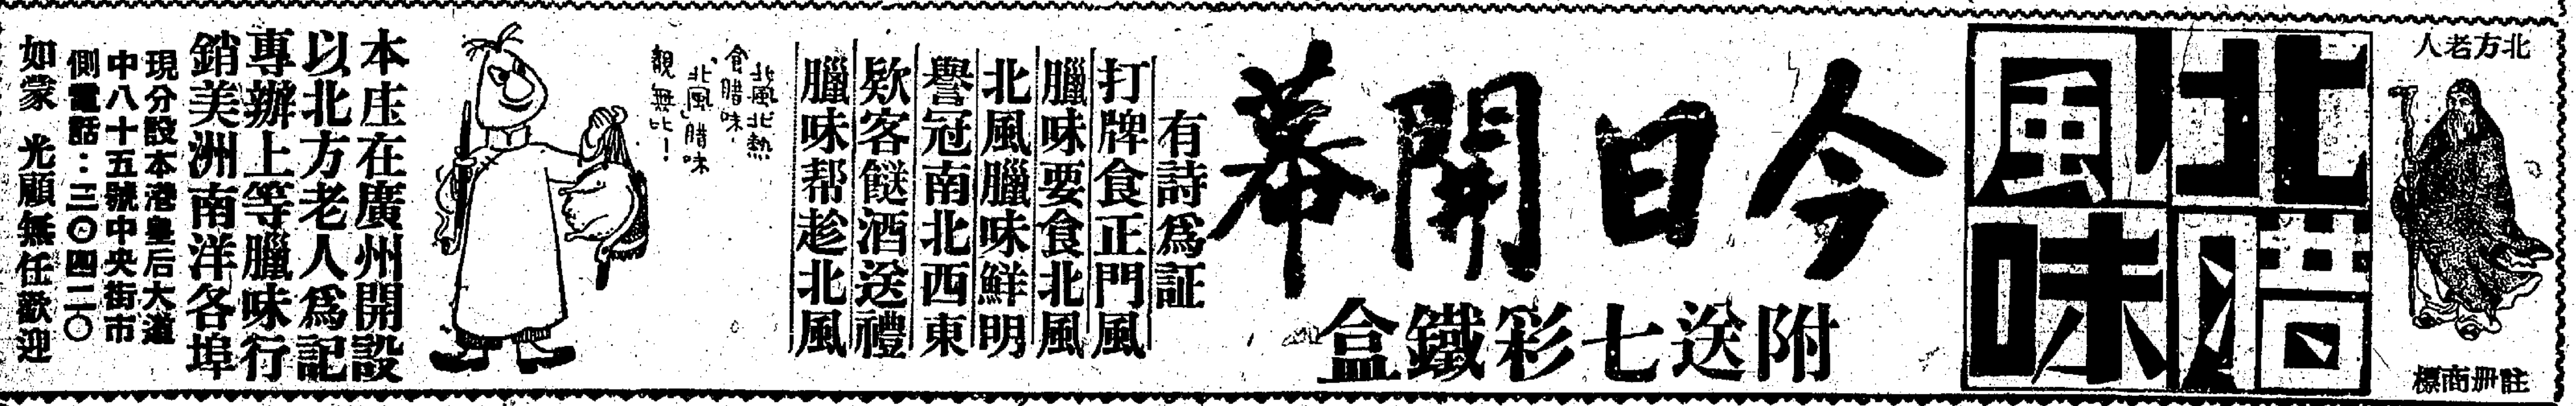 北方老人
註册商標
北風
腊味
今日開幕
附送七彩鐵盒
有詩爲証
打牌食正門風
臘味要食北風
北風臘味鮮明
譽冠南北西東
欵客餸酒送禮
臘味帮趁北風
北風北熱
食腊味，
「北風」腊味
靚無比！
本庄在廣州開設
以北方老人爲記
專辦上等臘味行
銷美洲南洋各埠
現分設本港皇后大道
中八十五號中央街市
側電話：三〇四二〇
如蒙 光顧無任歡迎